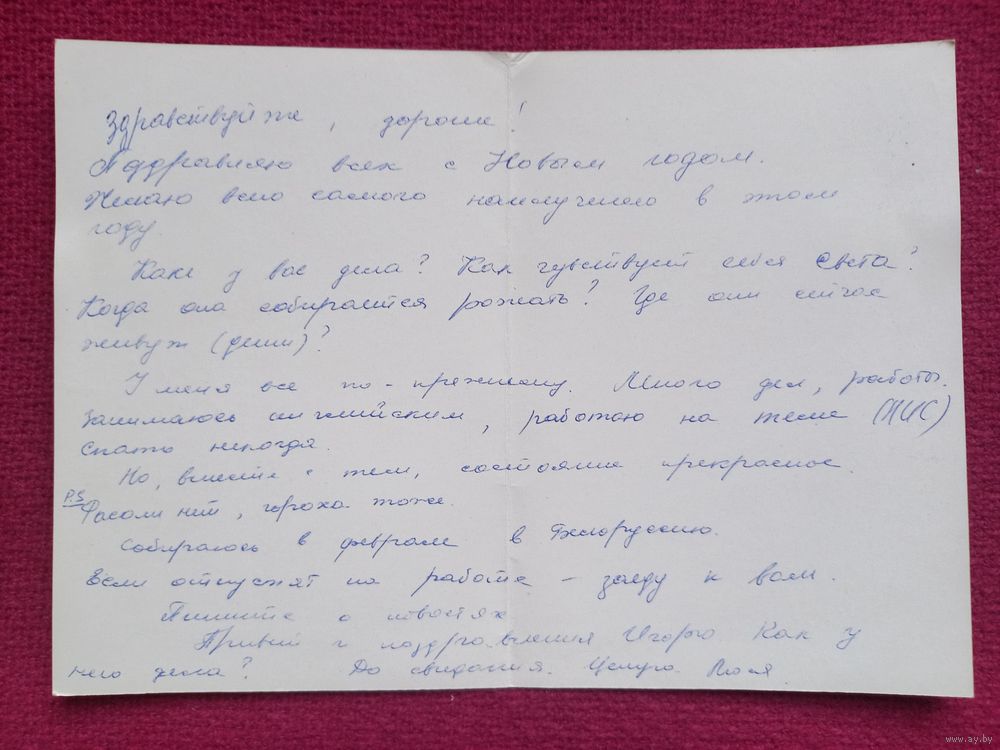 Здравствуйте, дорогие!
Поздравляю всех с Новым годом.
Желаю всего самого наилучшего в этом
году.
Как у вас дела? Как чувствует себя Света?
Когда она собирается рожать? Где они сейчас
живут (дети)?
У меня все по-прежнему. Много дел, работы.
Занимаюсь английским, работаю на теме
Спать некогда.
Но, вместе с тем, состояние прекрасное.
P.S Фасоли нет, гороха тоже.
Собираюсь в феврале в Белоруссию.
Если отпустят на работе - заеду к вам.
Пишите о новостях
Привет и поздравления Игорю. Как у
него дела? До свидания. Целую.
www.ay.by